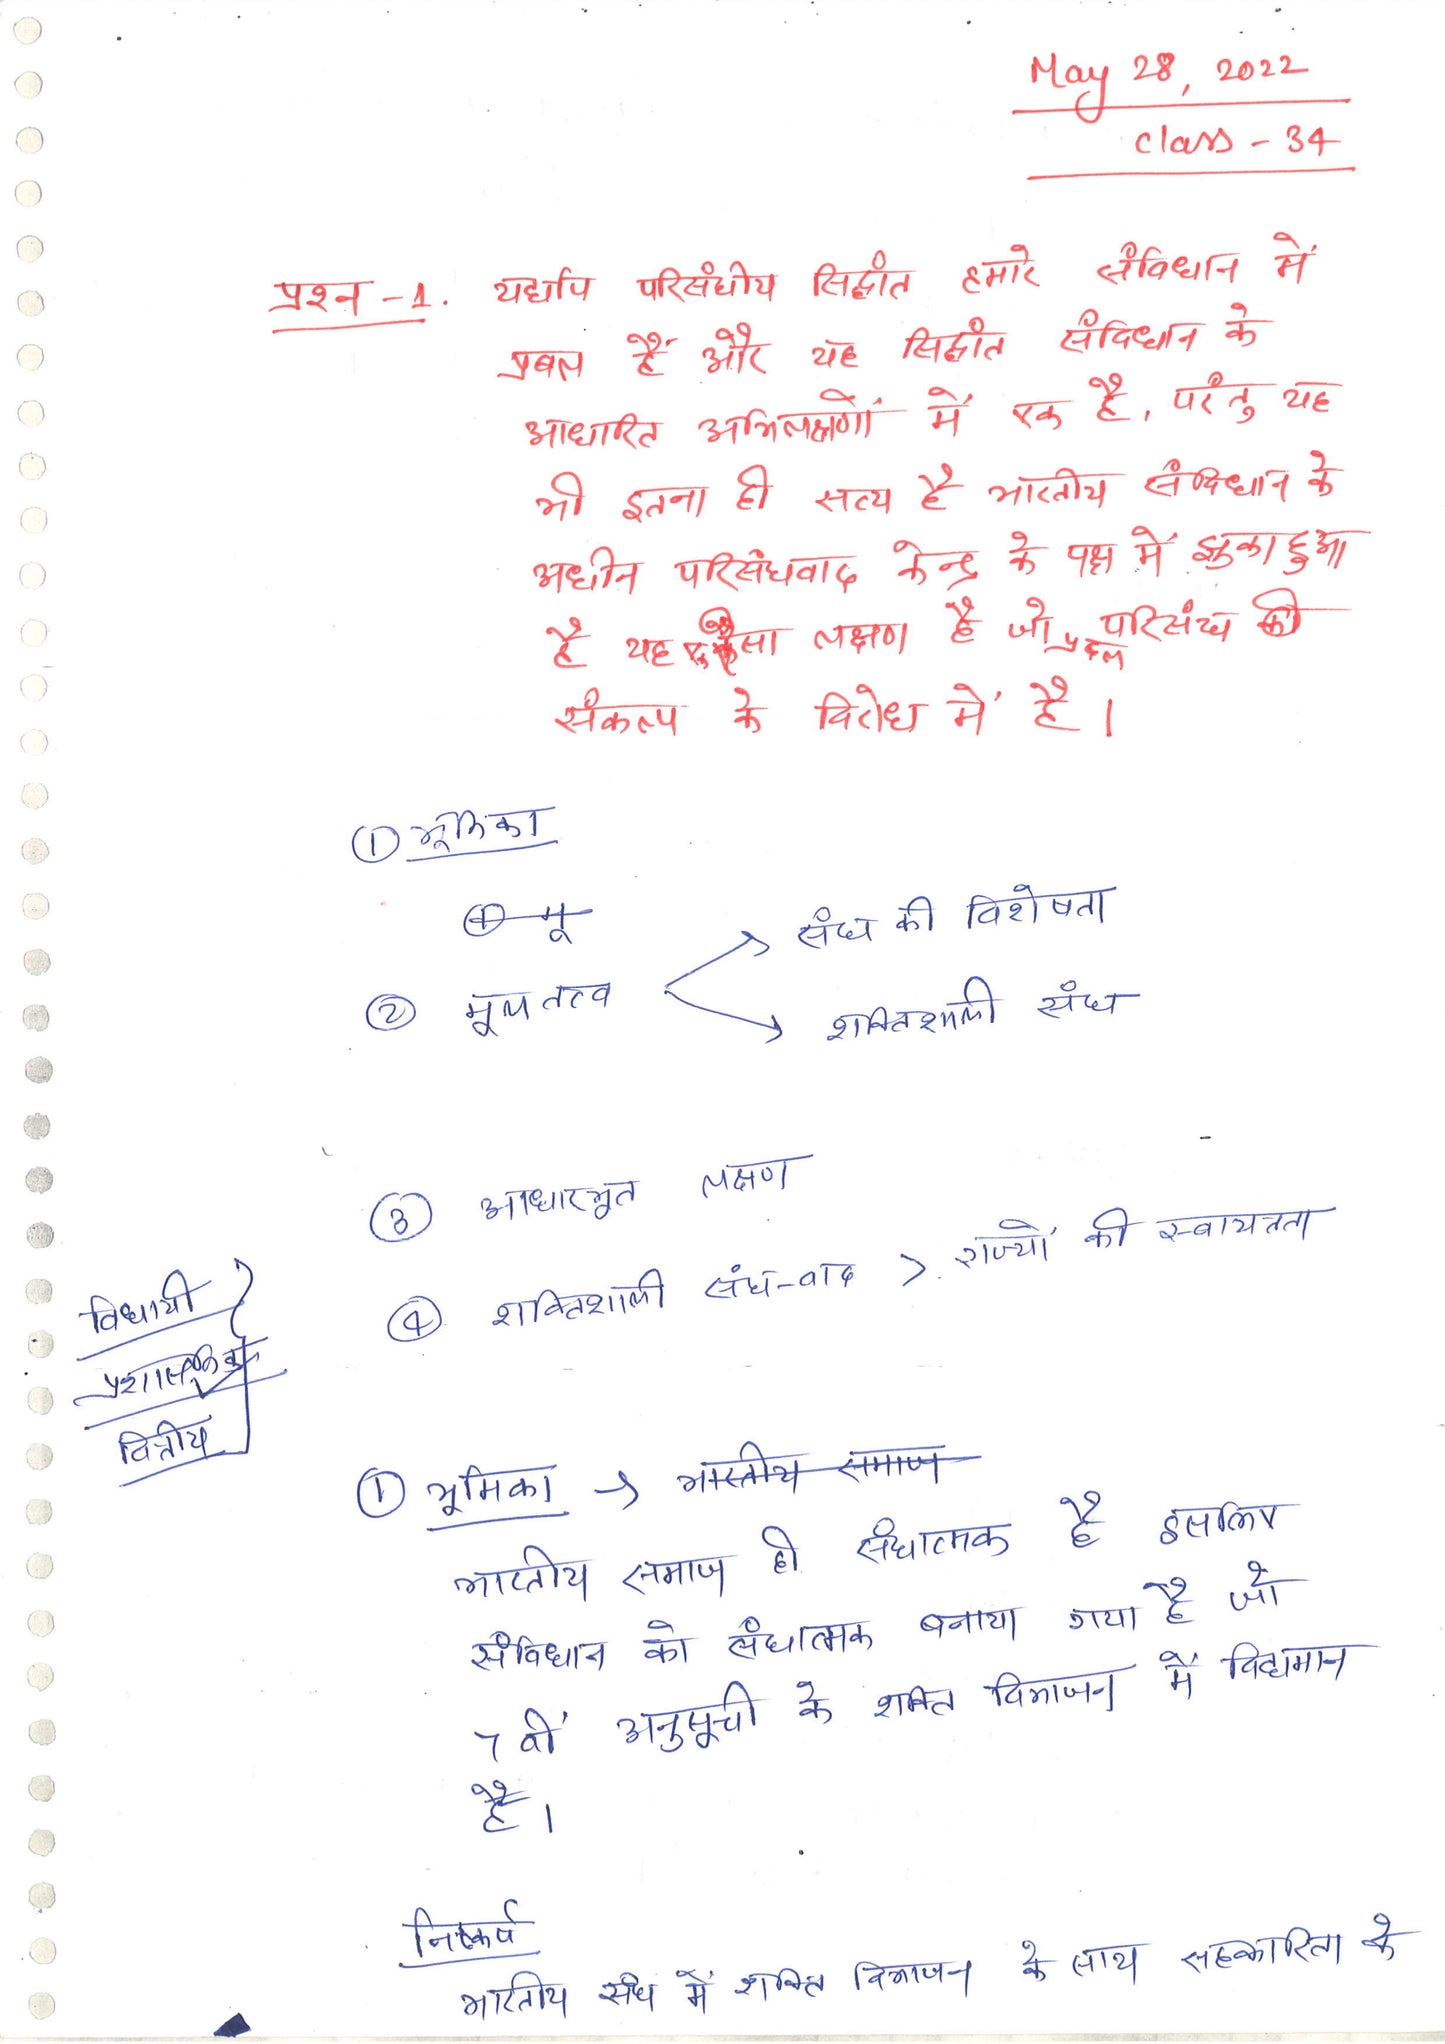 May 28, 2022
class - 34
प्रश्न - 1. यद्यपि परिसंघीय सिद्धांत हमारे संविधान में
प्रबल हैं और यह सिद्धांत संविधान के
आधारित अभिलक्षणों में एक है, परंतु यह
भी इतना ही सत्य है भारतीय संविधान के
अधीन परिसंघवाद केन्द्र के पक्ष में झुका हुआ
है यह सा लक्षण है जो प्रबल परिसंघ की
संकल्प के विरोध में है।
① भूमिका
② मूलतत्व
संघ की विशेषता
शक्तिशाली संघ
③ आधारभूत लक्षण
④ शक्तिशाली संघ-वाद > राज्यों की स्वायत्तता
विधायी
प्रशासनिक
वित्तीय
① भूमिका → भारतीय समाज
भारतीय समाज ही संघात्मक है इसलिए
संविधान को संघात्मक बनाया गया है जो
7 वीं अनुसूची के शक्ति विभाजन में विद्यमान
है।
निष्कर्ष
भारतीय संघ में शक्ति विभाजन के साथ सहकारिता के